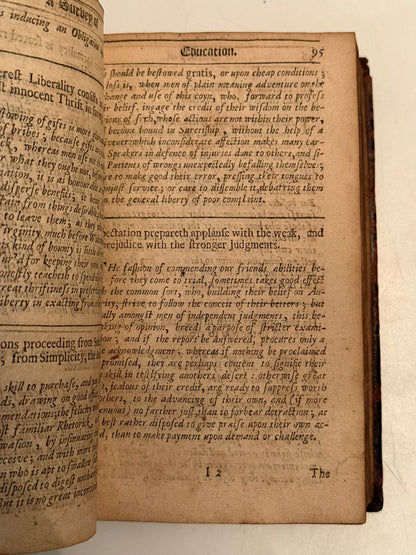 a Survey of
s inducing an Obligation
erest Liberality consists
st innocent Thrift in saving
stowing of gifts is more
of bribes; because gifts
ck, whereas men use not
what they ought not,
uation, it is a dishonour
disperse benefits; it being
tain from things desired
to leave them; as they
Virginity much before W
his kind of bounty is
ar'd for keeping their
onestly teacheth to
great thriftiness in preser
liberty in exacting from
ons proceeding from
, from Simplicity, the
skill to purchase, and pay
ds, drawing on good offices
mmendations; the felicity
st familiar Rhetorick,
wasion, by insinuating
; and with more
n who is apt to swallow
disposed to digest
But it is no great
Education. 95
s should be bestowed gratis, or upon cheap conditions;
ss is, when men of plain meaning adventure on the
change and use of this coyn, who, forward to profess
r belief, ingage the credit of their wisdom on the be-
viour of such, whose actions are not within their power,
become bound in Suretiship, without the help of a
vener; which inconsiderate affection makes many ear-
Speakers in defence of injuries done to others, and si-
Patients of wrongs unexpectedly befalling themselves;
re to make good their error, pressing their tongues to
njust service; or care to dissemble it, debarring them
the general liberty of poor complaint.
pectation prepareth applause with the weak, and
prejudice with the stronger Judgments.
He fashion of commending our friends abilities be-
fore they come to trial, sometimes takes good effect
the common sort, who, building their belief on Au-
ity, strive to follow the conceit of their betters; but
ally amongst men of independent judgments, this be-
aking of opinion, breeds a purpose of stricter exami-
on; and if the report be answered, procures only a
acknowledgment; whereas if nothing be proclaimed
romised, they are perhaps content to signifie their
skill in testifying anothers desert: otherwise great
s, jealous of their credit, are ready to suppress worth
others, to the advancing of their own, and (if more
enuous) no farther just, than to forbear detraction; at
best rather disposed to give praise upon their own ac-
rd, than to make payment upon demand or challenge.
I 2 The